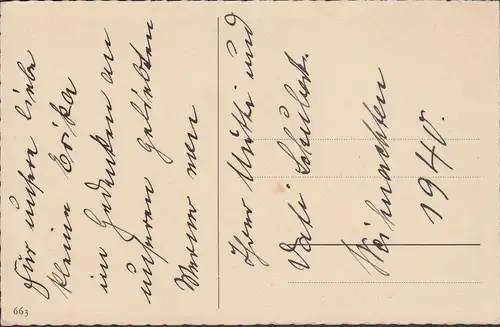 Für unsere liebe
kleine Erika
im Gedenken an
unseren geliebten
Werner von
Ihrer Mutti und
Vati Schubert.
Weihnachten
1940.
663